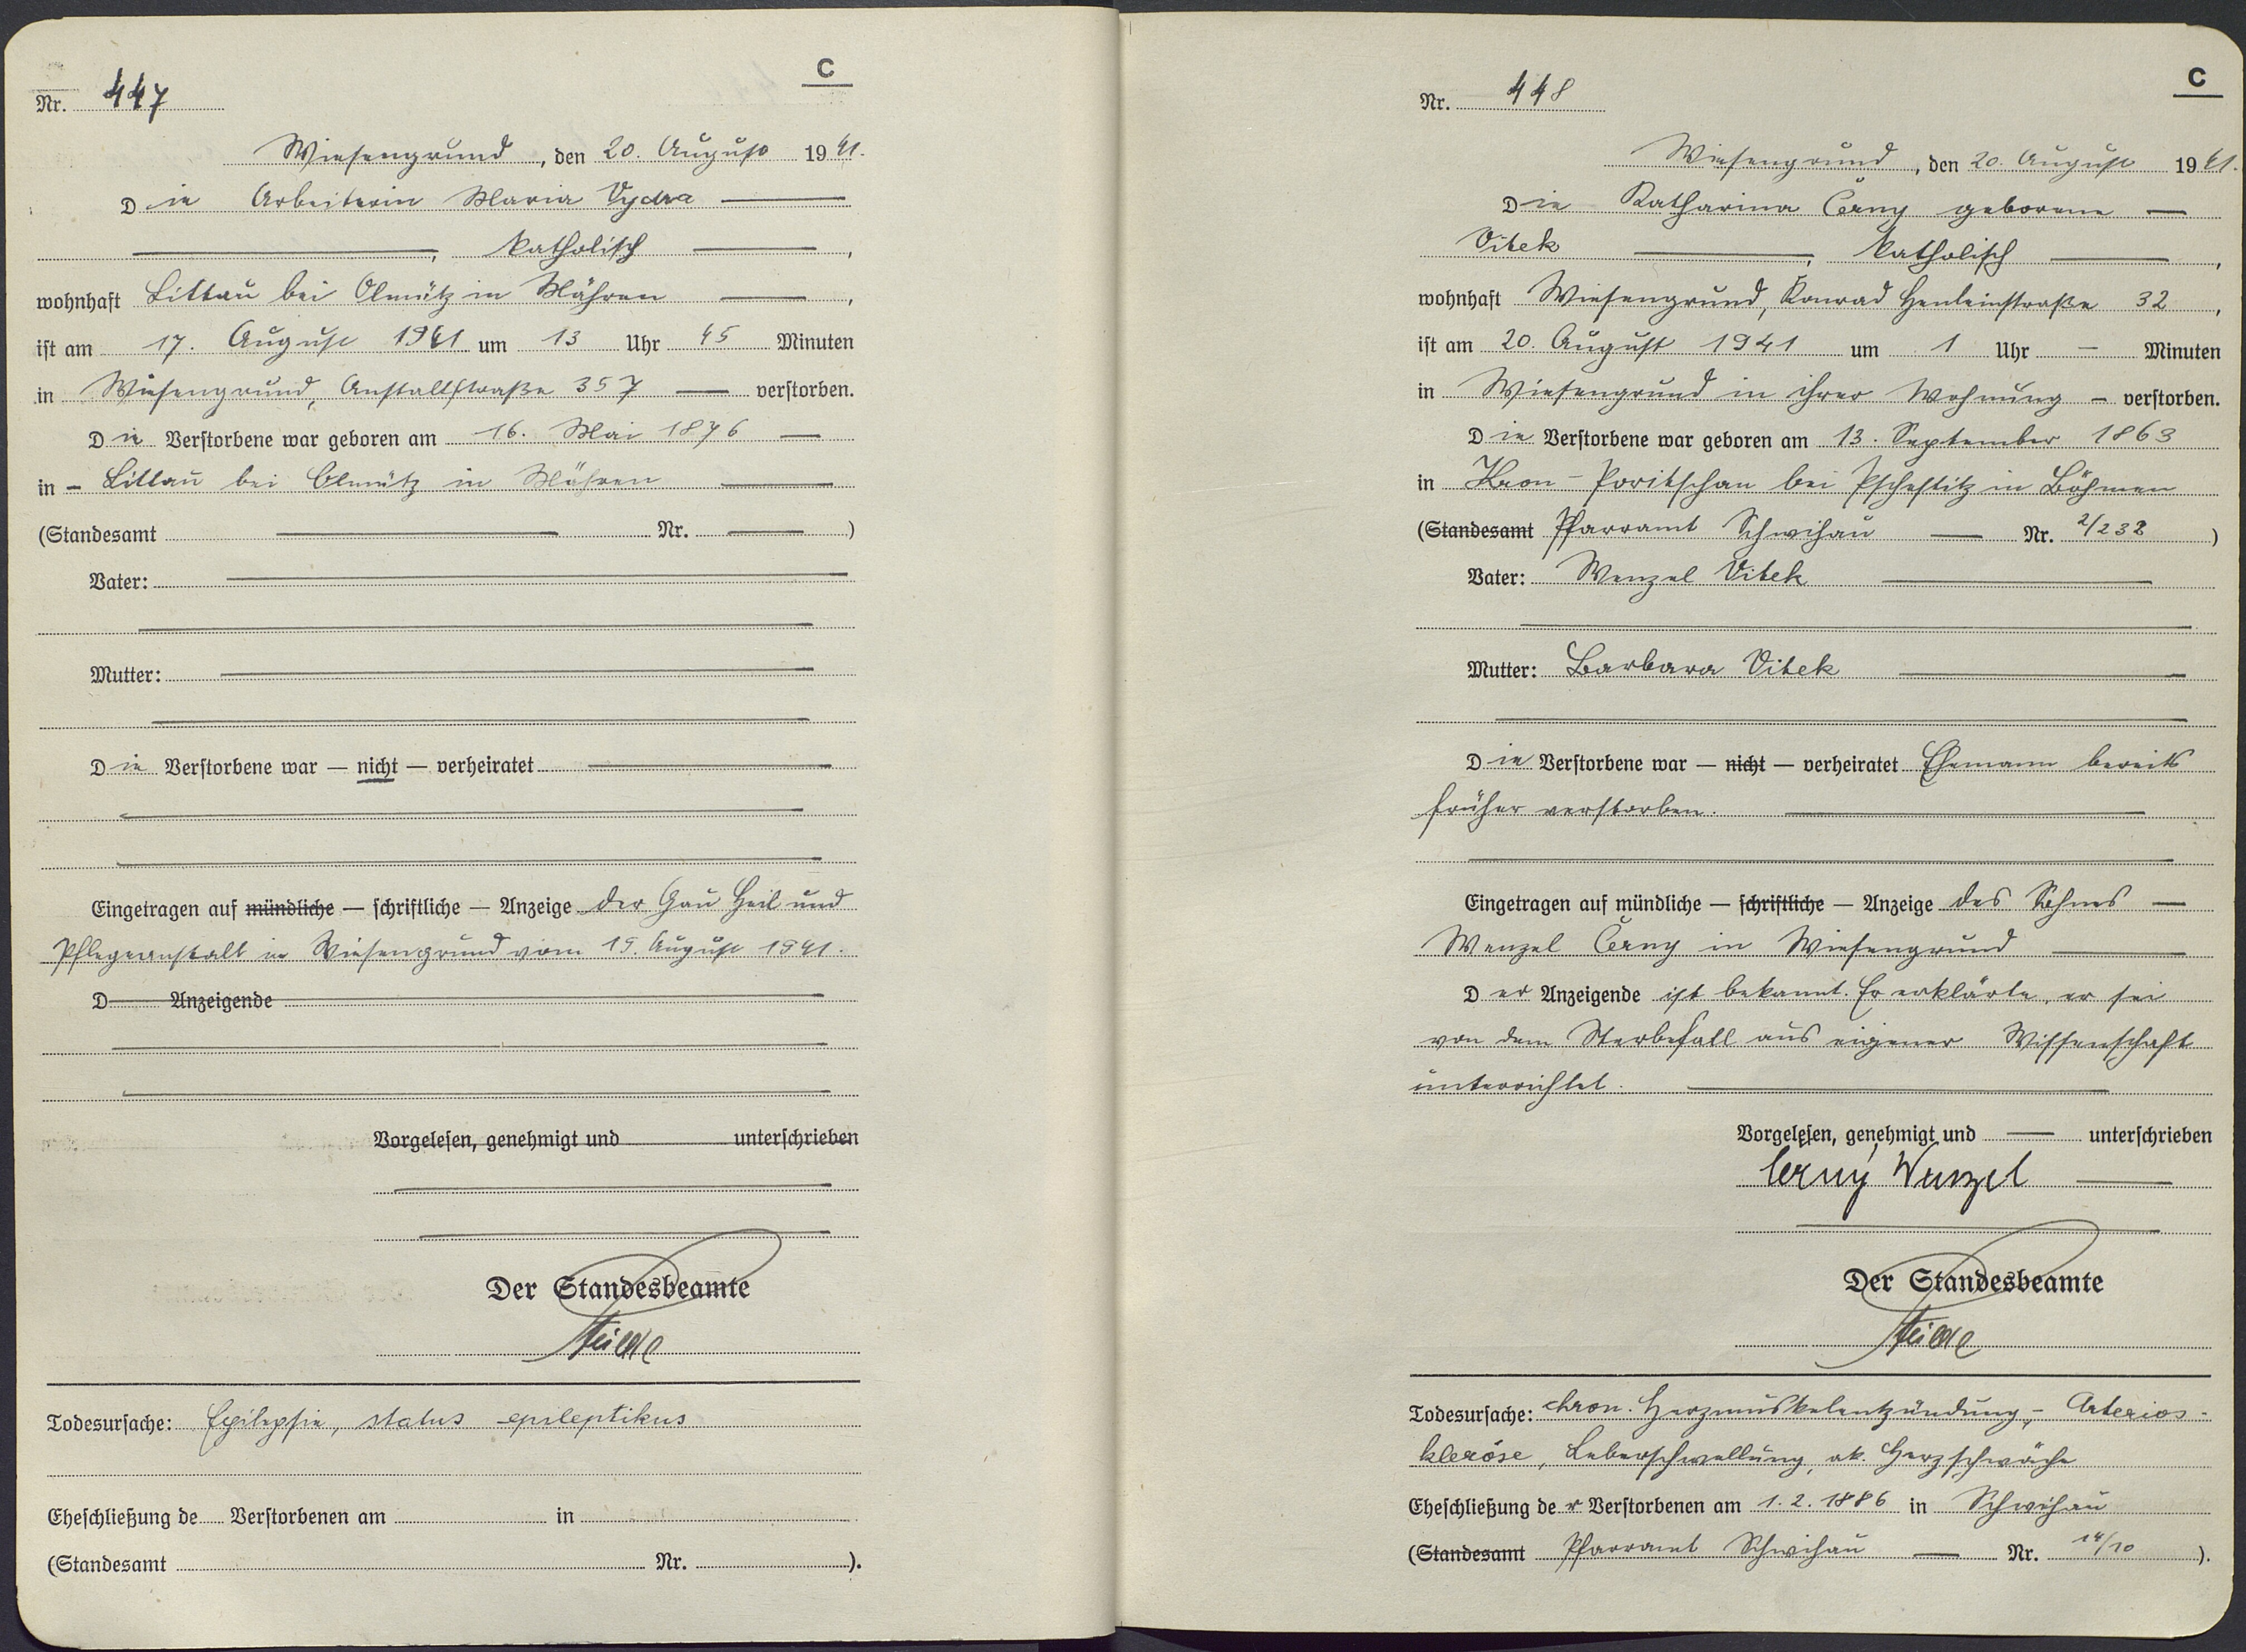 C
Nr. 447
Wiesengrund, den 20. August 1941.
Die Arbeiterin Maria Vydra
, katholisch ,
wohnhaft Littau bei Olmütz in Mähren ,
ist am 17. August 1941 um 13 Uhr 45 Minuten
in Wiesengrund, Anstaltstraße 357 verstorben.
Die Verstorbene war geboren am 16. Mai 1876
in Littau bei Olmütz in Mähren
(Standesamt Nr. )
Vater:
Mutter:
Die Verstorbene war — nicht — verheiratet
Eingetragen auf mündliche — schriftliche — Anzeige der Gau Heil und
Pflegeanstalt in Wiesengrund vom 19. August 1941.
D Anzeigende
Vorgelesen, genehmigt und unterschrieben
Der Standesbeamte
Todesursache: Epilepsie, status epileptikus
Eheschließung de Verstorbenen am in
(Standesamt Nr. ).
C
Nr. 448
Wiesengrund, den 20. August 1941.
Die Katharina Černy geborene
Vitek , katholisch ,
wohnhaft Wiesengrund, Konrad Henleinstraße 32 ,
ist am 20. August 1941 um 1 Uhr – Minuten
in Wiesengrund in ihrer Wohnung – verstorben.
Die Verstorbene war geboren am 13. September 1863
in Kron-Poritschan bei Pschestitz in Böhmen
(Standesamt Pfarramt Schwihau Nr. 2/232 )
Vater: Wenzel Vitek
Mutter: Barbara Vitek
Die Verstorbene war — nicht — verheiratet Ehemann bereits
früher verstorben.
Eingetragen auf mündliche — schriftliche — Anzeige des Sohnes
Wenzel Černy in Wiesengrund
Der Anzeigende ist bekannt. Er erklärte, er sei
von dem Sterbefall aus eigener Wissenschaft
unterrichtet.
Vorgelesen, genehmigt und unterschrieben
Černý Wenzel
Der Standesbeamte
Todesursache: chron. Herzmuskelentzündung, - Arterios-
kleröse, Leberschwellung, ak. Herzschwäche
Eheschließung der Verstorbenen am 1.2.1886 in Schwihau
(Standesamt Pfarramt Schwihau Nr. 14/10 ).